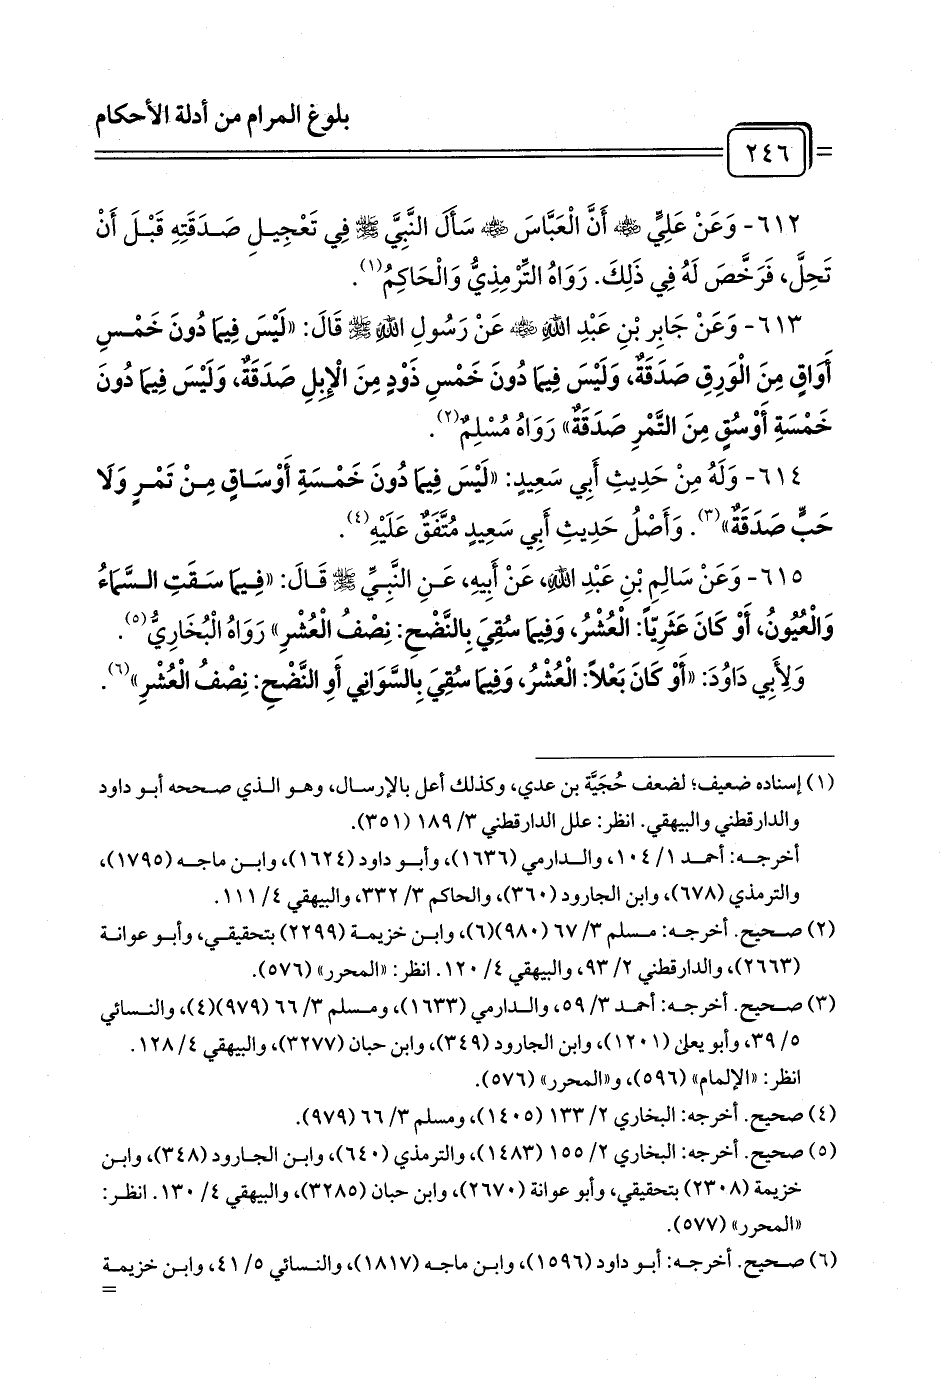 بلوغ المرام من أدلة الأحكام
٢٤٦
٦١٢- وَعَنْ عَلِيٍّ ﵁ أَنَّ الْعَبَّاسَ ﵁ سَأَلَ النَّبِيَّ ﷺ فِي تَعْجِيلِ صَدَقَتِهِ قَبْلَ أَنْ
تَحِلَّ، فَرَخَّصَ لَهُ فِي ذَلِكَ. رَوَاهُ التِّرْمِذِيُّ وَالْحَاكِمُ(١).
٦١٣- وَعَنْ جَابِرِ بْنِ عَبْدِ اللهِ ﵁ عَنْ رَسُولِ اللهِ ﷺ قَالَ: «لَيْسَ فِيمَا دُونَ خَمْسِ
أَوَاقٍ مِنَ الْوَرِقِ صَدَقَةٌ، وَلَيْسَ فِيمَا دُونَ خَمْسِ ذَوْدٍ مِنَ الْإِبِلِ صَدَقَةٌ، وَلَيْسَ فِيمَا دُونَ
خَمْسَةِ أَوْسُقٍ مِنَ التَّمْرِ صَدَقَةٌ» رَوَاهُ مُسْلِمٌ(٢).
٦١٤- وَلَهُ مِنْ حَدِيثِ أَبِي سَعِيدٍ: «لَيْسَ فِيمَا دُونَ خَمْسَةِ أَوْسَاقٍ مِنْ تَمْرٍ وَلَا
حَبٍّ صَدَقَةٌ»(٣). وَأَصْلُ حَدِيثِ أَبِي سَعِيدٍ مُتَّفَقٌ عَلَيْهِ(٤).
٦١٥- وَعَنْ سَالِمِ بْنِ عَبْدِ اللهِ، عَنْ أَبِيهِ، عَنِ النَّبِيِّ ﷺ قَالَ: «فِيمَا سَقَتِ السَّمَاءُ
وَالْعُيُونُ، أَوْ كَانَ عَثَرِيّاً: الْعُشْرُ، وَفِيمَا سُقِيَ بِالنَّضْحِ: نِصْفُ الْعُشْرِ» رَوَاهُ الْبُخَارِيُّ(٥).
وَلِأَبِي دَاوُدَ: «أَوْ كَانَ بَعْلاً: الْعُشْرُ، وَفِيمَا سُقِيَ بِالسَّوَانِي أَوِ النَّضْحِ: نِصْفُ الْعُشْرِ»(٦).
(١) إسناده ضعيف؛ لضعف حُجَيَّة بن عدي، وكذلك أعل بالإرسال، وهو الذي صححه أبو داود
والدارقطني والبيهقي. انظر: علل الدارقطني ٣/ ١٨٩ (٣٥١).
أخرجه: أحمد ١/ ١٠٤، والدارمي (١٦٣٦)، وأبو داود (١٦٢٤)، وابن ماجه (١٧٩٥)،
والترمذي (٦٧٨)، وابن الجارود (٣٦٠)، والحاكم ٣/ ٣٣٢، والبيهقي ٤/ ١١١.
(٢) صحيح. أخرجه: مسلم ٣/ ٦٧ (٩٨٠)(٦)، وابن خزيمة (٢٢٩٩) بتحقيقي، وأبو عوانة
(٢٦٦٣)، والدارقطني ٢/ ٩٣، والبيهقي ٤/ ١٢٠. انظر: «المحرر» (٥٧٦).
(٣) صحيح. أخرجه: أحمد ٣/ ٥٩، والدارمي (١٦٣٣)، ومسلم ٣/ ٦٦ (٩٧٩)(٤)، والنسائي
٥/ ٣٩، وأبو يعلى (١٢٠١)، وابن الجارود (٣٤٩)، وابن حبان (٣٢٧٧)، والبيهقي ٤/ ١٢٨.
انظر: «الإلمام» (٥٩٦)، و«المحرر» (٥٧٦).
(٤) صحيح. أخرجه: البخاري ٢/ ١٣٣ (١٤٠٥)، ومسلم ٣/ ٦٦ (٩٧٩).
(٥) صحيح. أخرجه: البخاري ٢/ ١٥٥ (١٤٨٣)، والترمذي (٦٤٠)، وابن الجارود (٣٤٨)، وابن
خزيمة (٢٣٠٨) بتحقيقي، وأبو عوانة (٢٦٧٠)، وابن حبان (٣٢٨٥)، والبيهقي ٤/ ١٣٠. انظر:
«المحرر» (٥٧٧).
(٦) صحيح. أخرجه: أبو داود (١٥٩٦)، وابن ماجه (١٨١٧)، والنسائي ٥/ ٤١، وابن خزيمة
=